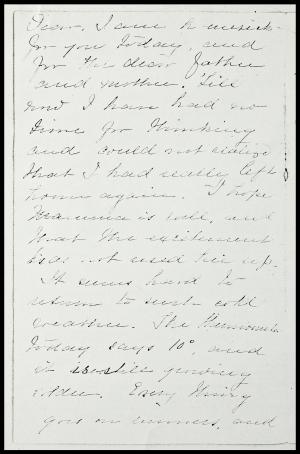 Dear. I am homesick
for you today, and
for the dear father
and mother. Till
now I have had no
time for thinking
and could not realize
that I had really left
home again. I hope
Mamma is well, and
that the excitement
has not used her up.
It seems hard to
return to such cold
weather. The thermometer
today says 10°, and
it is still growing
colder. Every thing
goes on runners, and